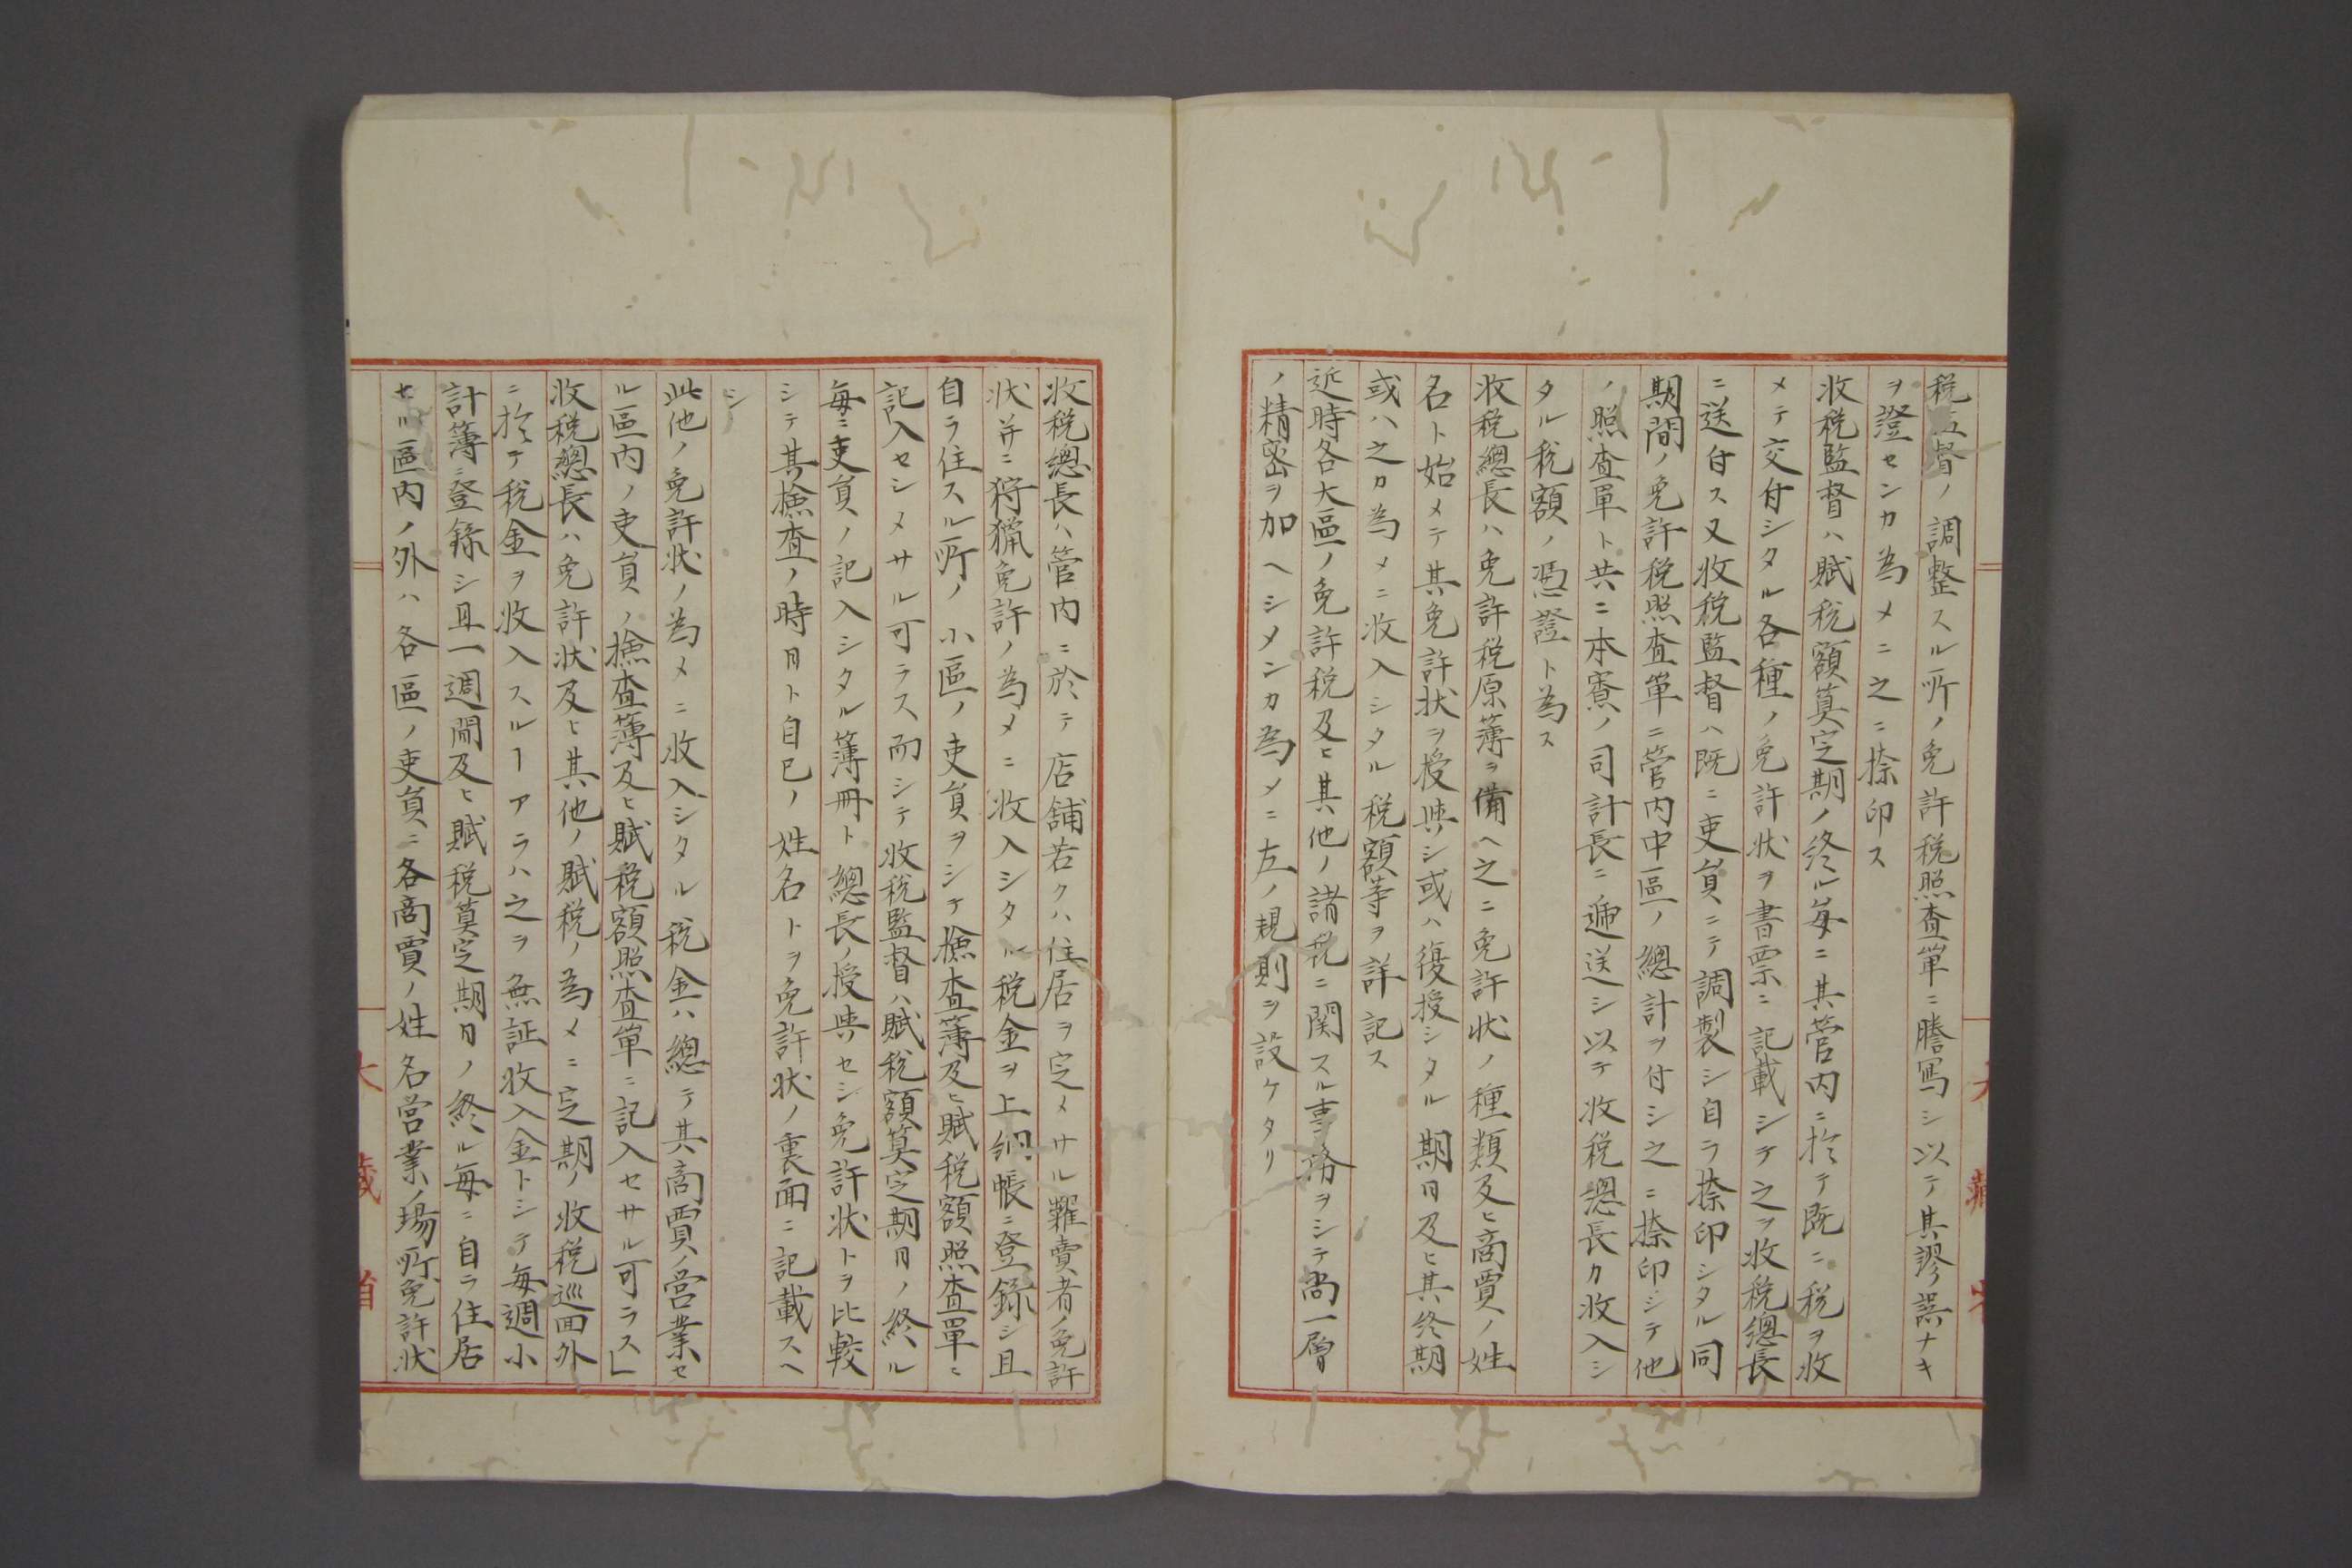 税監督ノ調整スル所ノ免許税照査單ニ謄寫シ以テ其謬誤ナキ
ヲ證センカ為メニ之ニ捺印ス
收税監督ハ賦税額算定期ノ終ル毎ニ其管内ニ於テ既ニ税ヲ收
メテ交付シタル各種ノ免許状ヲ書票ニ記載シテ之ヲ收税總長
ニ送付ス又收税監督ハ既ニ吏員ニテ調製シ自ラ捺印シタル同
期間ノ免許税照査單ニ管内中區ノ總計ヲ付シ之ニ捺印シテ他
ノ照査單ト共ニ本寮ノ司計長ニ逓送シ以テ收税總長カ收入シ
タル税額ノ憑證ト為ス
收税總長ハ免許税原簿ヲ備ヘ之ニ免許状ノ種類及ヒ商賈ノ姓
名ト始メテ其免許状ヲ授與シ或ハ復授シタル期日及ヒ其終期
或ハ之カ為メニ收入シタル税額等ヲ詳記ス
近時各大區ノ免許税及ヒ其他ノ諸税ニ関スル事務ヲシテ尚一層
ノ精密ヲ加ヘシメンカ為メニ左ノ規則ヲ設ケタリ
收税總長ハ管内ニ於テ店舗若クハ住居ヲ定メサル糶賣者ノ免許
状并ニ狩猟免許ノ為メニ收入シタル税金ヲ上納帳ニ登録シ且
自ラ住スル所ノ小區ノ吏員ヲシテ檢査簿及ヒ賦税額照査單ニ
記入セシメサル可ラス而シテ收税監督ハ賦税額算定期日ノ終ル
毎ニ吏員ノ記入シタル簿冊ト總長ノ授與セシ免許状トヲ比較
シテ其檢査ノ時日ト自己ノ姓名トヲ免許状ノ裏面ニ記載スヘ
シ
此他ノ免許状ノ為メニ收入シタル税金ハ總テ其商賈ノ営業セ
ル區内ノ吏員ノ檢査簿及ヒ賦税額照査單ニ記入セサル可ラス」
收税總長ハ免許状及ヒ其他ノ賦税ノ為メニ定期ノ收税巡回外
ニ於テ税金ヲ收入スルーアラハ之ヲ無証收入金トシテ毎週小
計簿ニ登録シ且一週間及ヒ賦税算定期日ノ終ル毎ニ自ラ住居
セル區内ノ外ハ各區ノ吏員ニ各商賈ノ姓名営業ノ場所免許状
大藏省